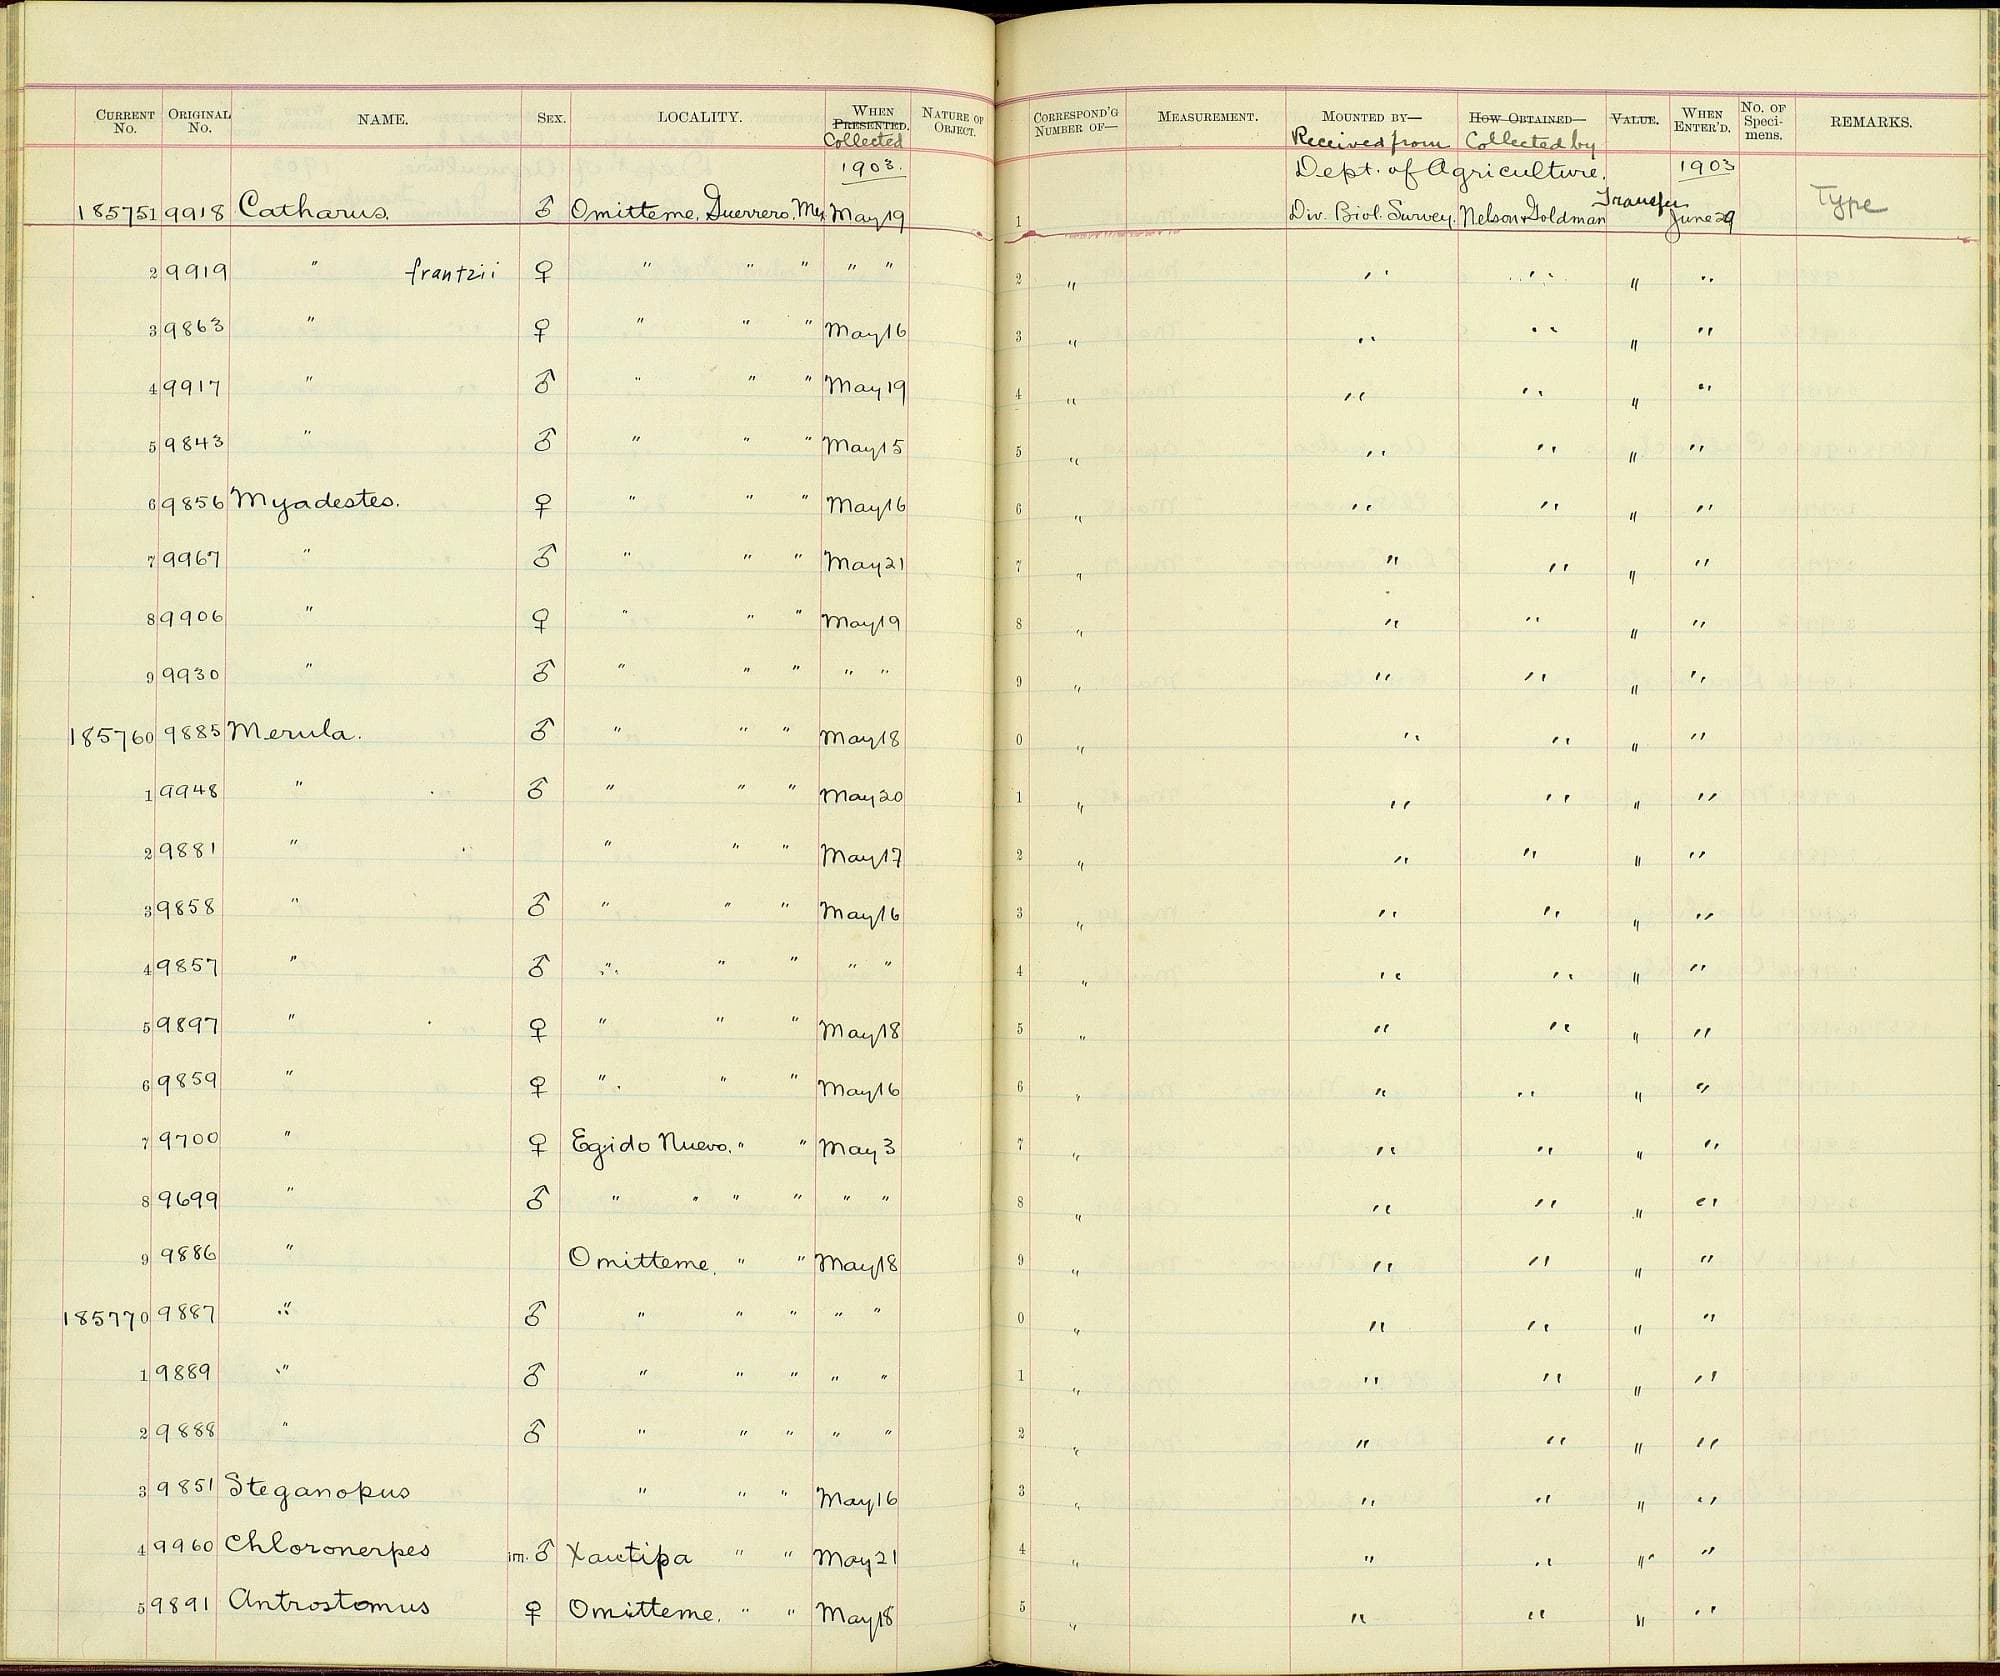 CURRENT No. ORIGINAL No. NAME. SEX. LOCALITY. WHEN PRESENTED. Collected NATURE OF OBJECT. CORRESPOND'G NUMBER OF— MEASUREMENT. MOUNTED BY— Received from HOW OBTAINED— Collected by VALUE. WHEN ENTER'D. No. OF Speci-mens. REMARKS.
1903. Dept. of Agriculture. 1903
185751 9918 Catharus. ♂ Omitteme, Guerrero, Mex May 19 1 Div. Biol. Survey. Nelson & Goldman Transfer June 29 Type
2 9919 " frantzii ♀ " " " " " 2 " " " " "
3 9863 " ♀ " " " May 16 3 " " " " "
4 9917 " ♂ " " " May 19 4 " " " " "
5 9843 " ♂ " " " May 15 5 " " " " "
6 9856 Myadestes. ♀ " " " May 16 6 " " " " "
7 9967 " ♂ " " " May 21 7 " " " " "
8 9906 " ♀ " " " May 19 8 " " " " "
9 9930 " ♂ " " " " " 9 " " " " "
185760 9885 Merula. ♂ " " " May 18 0 " " " " "
1 9948 " ♂ " " " May 20 1 " " " " "
2 9881 " " " " May 17 2 " " " " "
3 9858 " ♂ " " " May 16 3 " " " " "
4 9857 " ♂ " " " " " 4 " " " " "
5 9897 " ♀ " " " May 18 5 " " " " "
6 9859 " ♀ " " " May 16 6 " " " " "
7 9700 " ♀ Egido Nuevo. " " May 3 7 " " " " "
8 9699 " ♂ " " " " " " 8 " " " " "
9 9886 " Omitteme. " " May 18 9 " " " " "
185770 9887 " ♂ " " " " " 0 " " " " "
1 9889 " ♂ " " " " " 1 " " " " "
2 9888 " ♂ " " " " " 2 " " " " "
3 9851 Steganopus " " " May 16 3 " " " " "
4 9960 Chloronerpes im. ♂ Xautipa " " May 21 4 " " " " "
5 9891 Antrostomus ♀ Omitteme. " " May 18 5 " " " " "